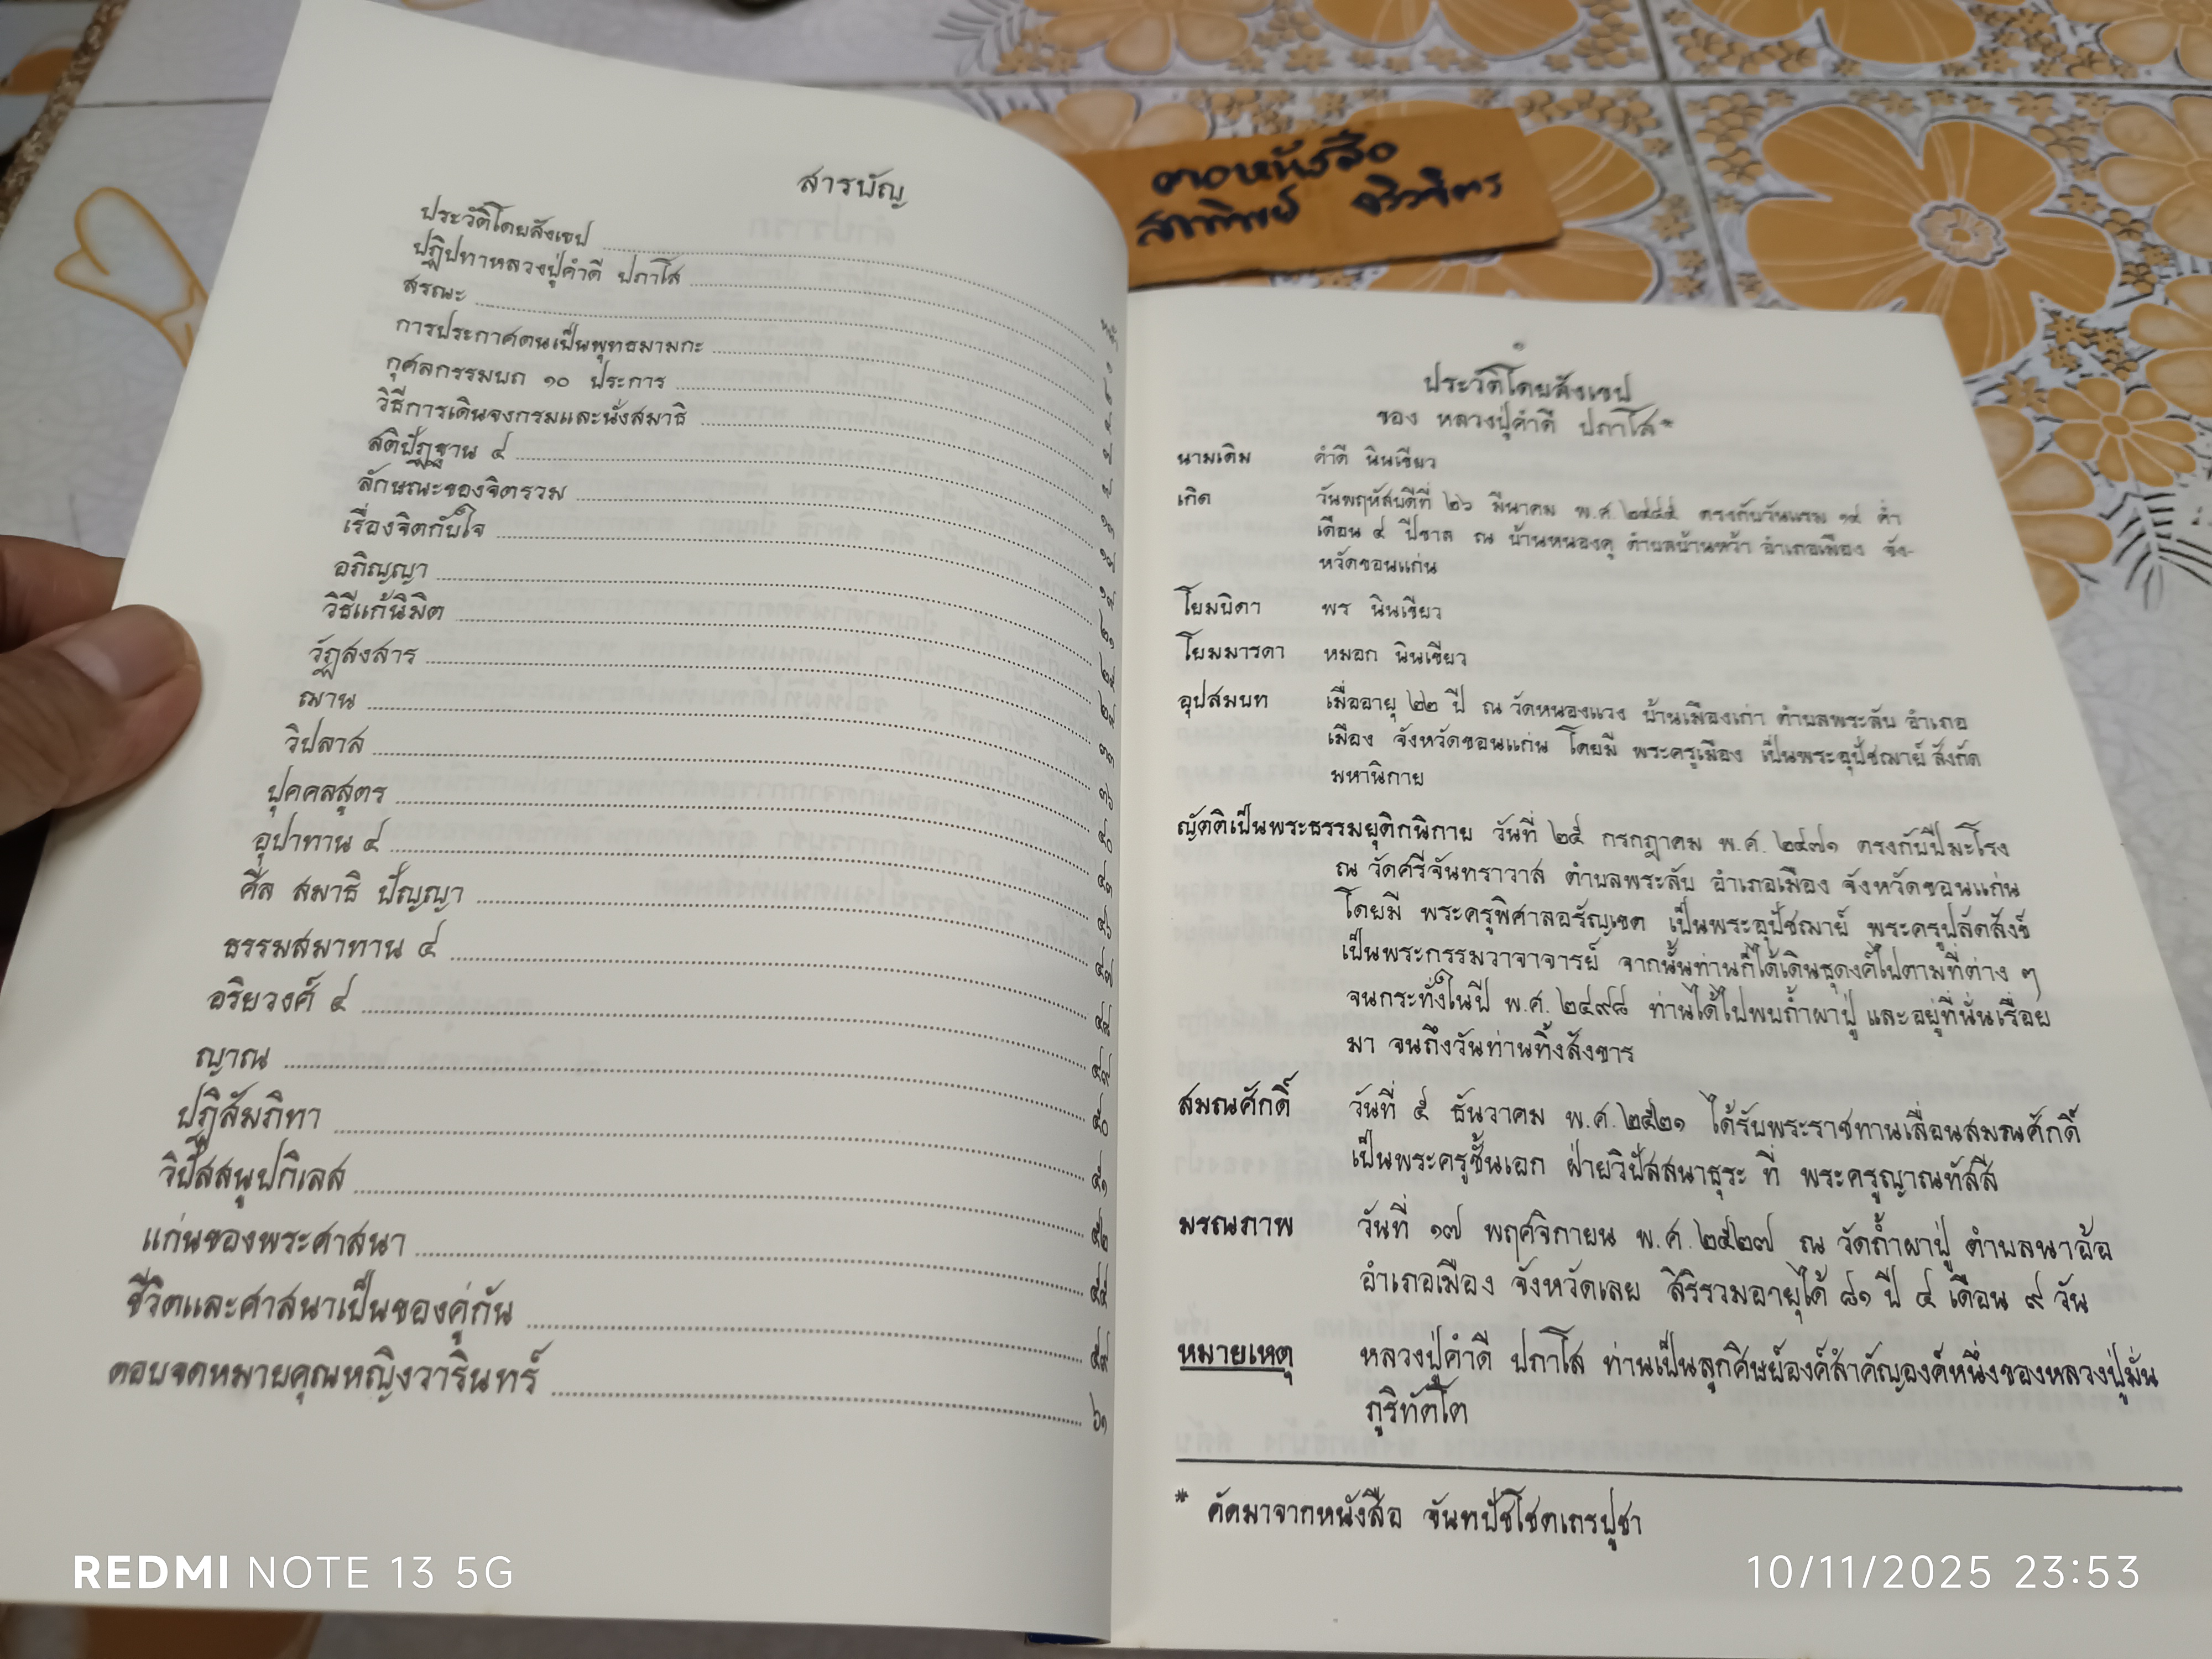 สารบัญ
หน้า
ประวัติโดยสังเขป ๑
ปฏิปทาหลวงปู่คำดี ปภาโส
สรณะ
การประกาศตนเป็นพุทธมามกะ
กุศลกรรมบถ ๑๐ ประการ
วิธีการเดินจงกรมและนั่งสมาธิ
สติปัฏฐาน ๔
ลักษณะของจิตรวม
เรื่องจิตกับใจ
อภิญญา ๒๑
วิธีแก้นิมิต
วัฏสงสาร
ฌาน ๓๓
วิปลาส ๓๖
ปุคคลสูตร ๔๐
อุปาทาน ๔ ๔๑
ศีล สมาธิ ปัญญา ๔๖
ธรรมสมาทาน ๔ ๔๗
อริยวงศ์ ๔
ญาณ ๔๙
ปฏิสัมภิทา ๕๐
วิปัสสนูปกิเลส ๕๑
แก่นของพระศาสนา ๕๒
ชีวิตและศาสนาเป็นของคู่กัน
ตอบจดหมายคุณหญิงวารินทร์ ๖๑
ตอหนังสือ
๑
ประวัติโดยสังเขป
ของ หลวงปู่คำดี ปภาโส*
นามเดิม คำดี นินเขียว
เกิด วันพฤหัสบดีที่ ๒๖ มีนาคม พ.ศ. ๒๔๔๕ ตรงกับวันแรม ๑๔ ค่ำ
เดือน ๔ ปีขาล ณ บ้านหนองคู ตำบลบ้านหว้า อำเภอเมือง จัง-
หวัดขอนแก่น
โยมบิดา พร นินเขียว
โยมมารดา หมอก นินเขียว
อุปสมบท เมื่ออายุ ๒๒ ปี ณ วัดหนองแวง บ้านเมืองเก่า ตำบลพระลับ อำเภอ
เมือง จังหวัดขอนแก่น โดยมี พระครูเมือง เป็นพระอุปัชฌาย์ สังกัด
มหานิกาย
ญัตติเป็นพระธรรมยุติกนิกาย วันที่ ๒๕ กรกฎาคม พ.ศ. ๒๔๗๑ ตรงกับปีมะโรง
ณ วัดศรีจันทราวาส ตำบลพระลับ อำเภอเมือง จังหวัดขอนแก่น
โดยมี พระครูพิศาลอรัญเขต เป็นพระอุปัชฌาย์ พระครูปลัดสังข์
เป็นพระกรรมวาจาจารย์ จากนั้นท่านก็ได้เดินธุดงค์ไปตามที่ต่าง ๆ
จนกระทั่งในปี พ.ศ. ๒๔๙๘ ท่านได้ไปพบถ้ำผาปู่ และอยู่ที่นั่นเรื่อย
มา จนถึงวันท่านทิ้งสังขาร
สมณศักดิ์ วันที่ ๕ ธันวาคม พ.ศ. ๒๕๒๑ ได้รับพระราชทานเลื่อนสมณศักดิ์
เป็นพระครูชั้นเอก ฝ่ายวิปัสสนาธุระ ที่ พระครูญาณทัสสี
มรณภาพ วันที่ ๑๗ พฤศจิกายน พ.ศ. ๒๕๒๗ ณ วัดถ้ำผาปู่ ตำบลนาอ้อ
อำเภอเมือง จังหวัดเลย สิริรวมอายุได้ ๘๑ ปี ๔ เดือน ๙ วัน
หมายเหตุ หลวงปู่คำดี ปภาโส ท่านเป็นลูกศิษย์องค์สำคัญองค์หนึ่งของหลวงปู่มั่น
ภูริทัตโต
* คัดมาจากหนังสือ จันทปัชโชตเถรปูชา
REDMI NOTE 13 5G
10/11/2025 23:53